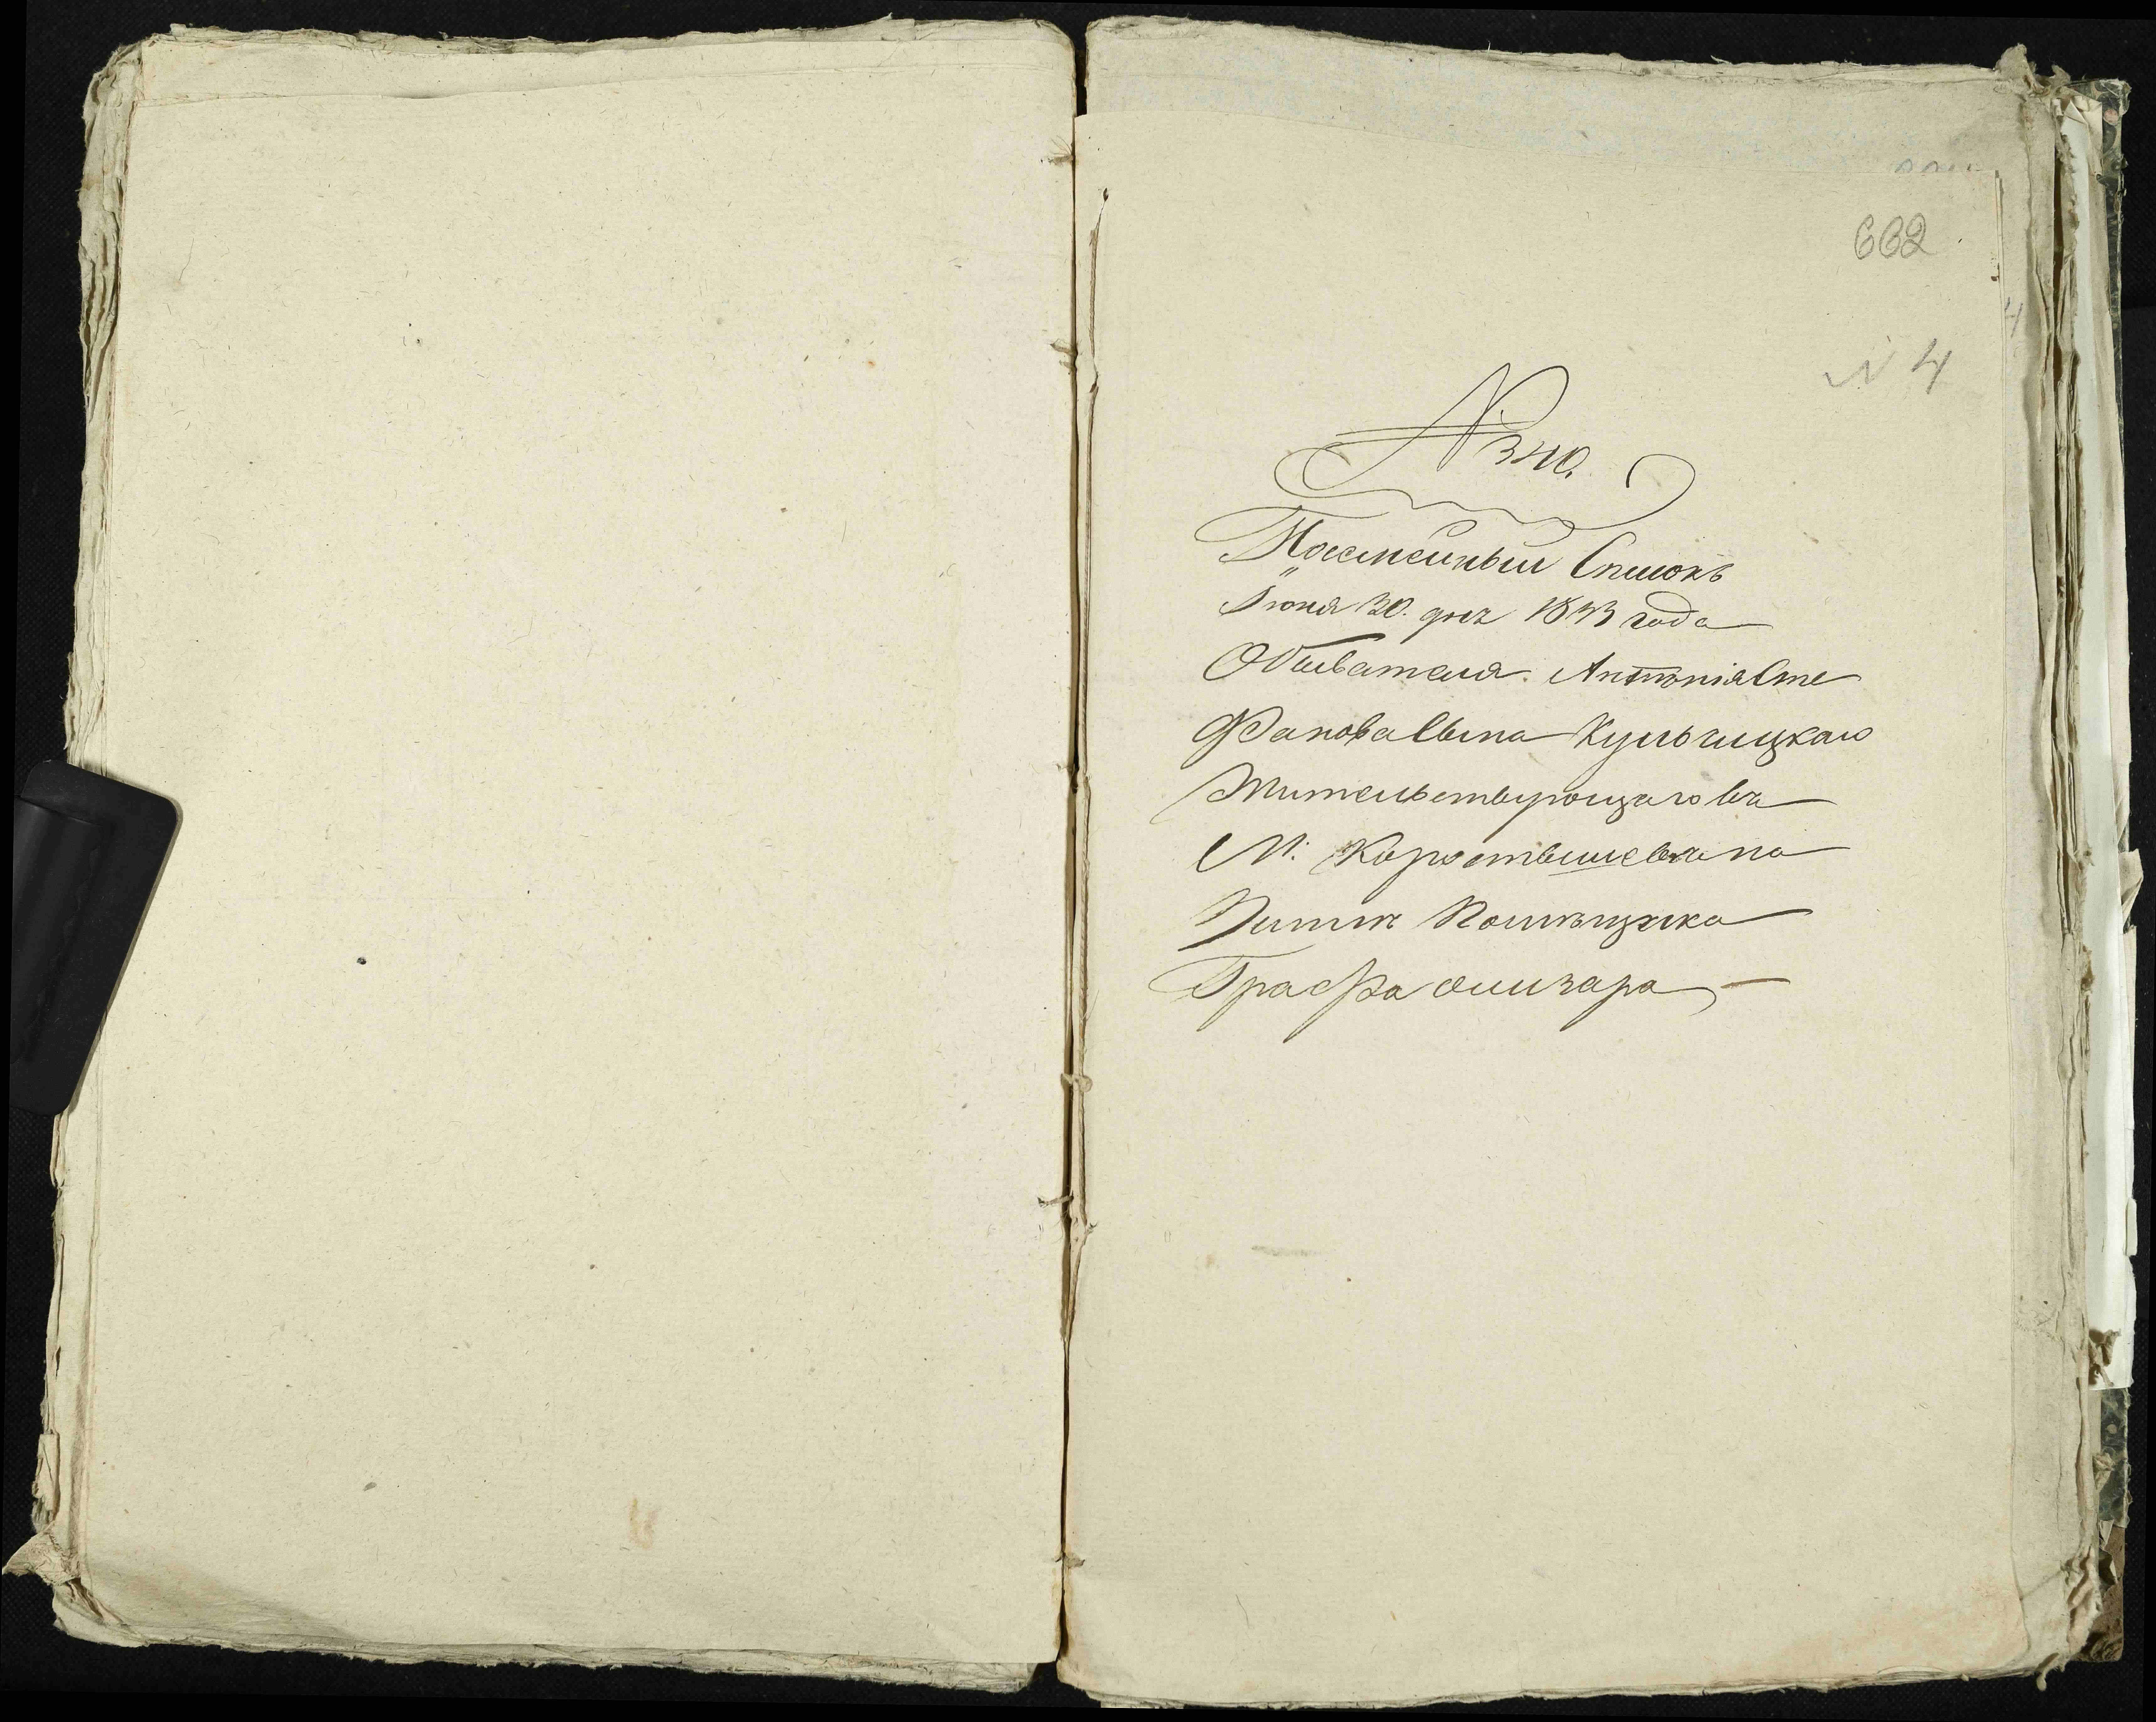 662
N 4
№ 340.
Посемейный Списокъ
Іюня 30. дня 1833 года
Обывателя Антонія Сте
Фанова Сына Кульчицкаго
Жительствующаго въ
М: Коростышевѣ на
Помѣщика
Графа Олизара